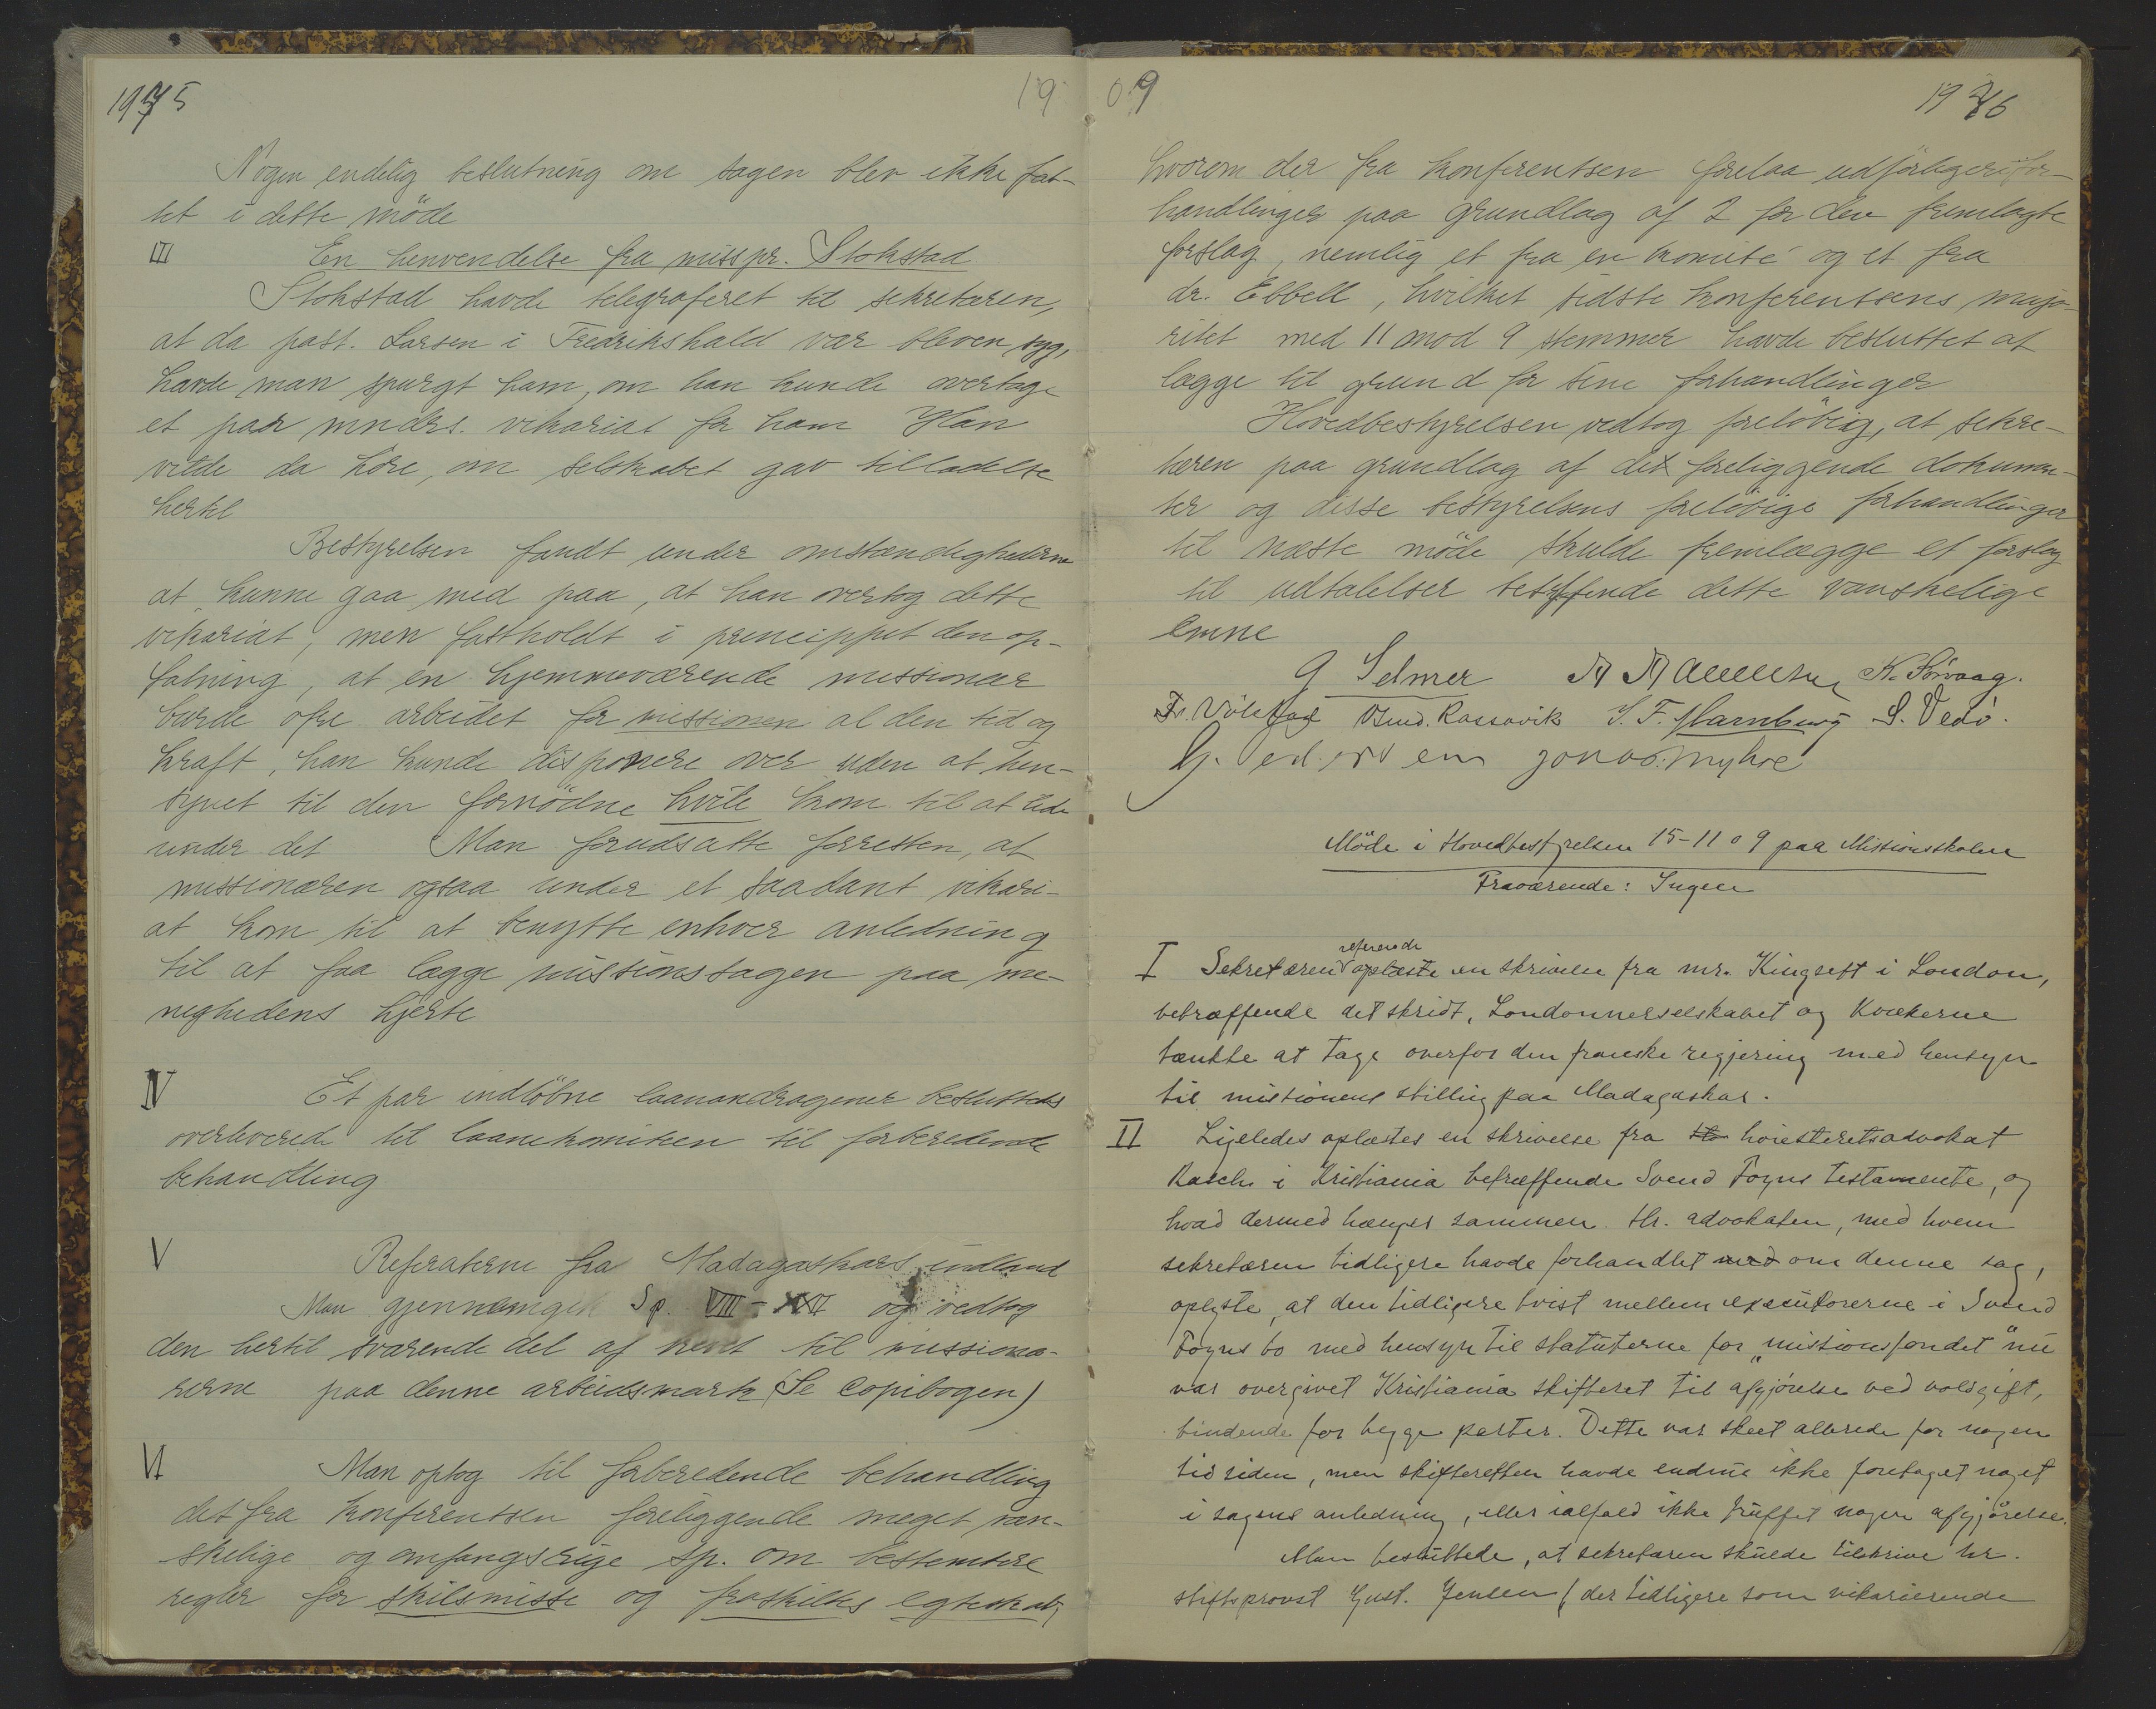 1975
19
Nogen endelig beslutning om sagen blev ikke fat-
tet i dette möde
III En henvendelse fra misspr. Stokstad
Stokstad havde telegraferet til sekretæren,
at da past. Larsen i Fredrikshald var bleven syg,
havde man spurgt ham, om han kunde overtage
et par mndrs. vikariat for ham Han
vilde da höre, om selskabet gav tilladelse
hertil
Bestyrelsen fandt under omstændighederne
at kunne gaa med paa, at han overtog dette
vikariat, men fastholdt i princippet den op-
fatning, at en hjemmeværende missionær
burde ofre arbeidet for missionen al den tid og
kraft, han kunde disponere over uden at hen-
synet til den fornödne hvile kom til at lide
under det Man forudsatte forresten, at
missionæren ogsaa under et saadant vikari-
at kom til at benytte enhver anledning
til at faa lægge missionssagen paa me-
nighedens hjerte
IV Et par indlöbne laanandragener besluttedes
overleveret til laanekomiteen til forberedende
behandling
V Referaterne fra Madagaskars indland
Man gjennemgik Sp. VIII - XII og vedtog
den hertil svarende del af brevet til missionæ-
rerne paa denne arbeidsmark (Se Copibogen)
VI Man optog til forberedende behandling
det fra konferentsen foreliggende meget van-
skelige og omfangsrige sp. om bestemtere
regler for skilsmisse og fraskiltes egteskab,
09
1976
hvorom der fra konferentsen forelaa udförligere for-
handlinger paa grundlag af 2 for den fremlagte
forslag, nemlig et fra en komité og et fra
dr. Ebbell, hvilket sidste konferentsens majo-
ritet med 11 mod 9 stemmer havde besluttet at
lægge til grund for sine forhandlinger
Hovedbestyrelsen vedtog forelöbig, at sekre-
tæren paa grundlag af de foreliggende dokumen-
ter og disse bestyrelsens forelöbige forhandlinger
til næste möde skulde fremlægge et forslag
til udtalelser betræffende dette vanskelige
emne
G Selmer K. Förvaag.
Rossavik J. F. Hamburg S. Vedö.
Jonas Myhre
Möde i Hovedbestyrelsen 15-11 09 paa Missionsskolen
Fraværende: Ingen
I Sekretæren refererede oplæste en skrivelse fra mr. Kingseft i London,
betræffende det skridt, Londonnerselskabet og Kvækerne
tænkte at tage overfor den franske regjering med hensyn
til missionens stilling paa Madagaskar.
II Ligeledes oplæstes en skrivelse fra höiesteretsadvokat
i Kristiania betræffende Svend Foyns testamente, og
hvad dermed hænger sammen. Hr. advokaten, med hvem
sekretæren tidligere havde forhandlet med om denne sag,
oplyste, at den tidligere tvist mellem executorerne i Svend
Foyns bo med hensyn til statuterne for „missionsfondet" nu
var overgivet Kristiania skifteret til afgjörelse ved voldgift,
bindende for begge parter. Dette var skeet allerede for nogen
tid siden, men skifteretten havde endnu ikke foretaget noget
i sagens anledning, eller ialfald ikke truffet nogen afgjörelse.
Man besluttede, at sekretæren skulde tilskrive hr.
stiftsprovst Gust. Jensen (der tidligere som vikarierende